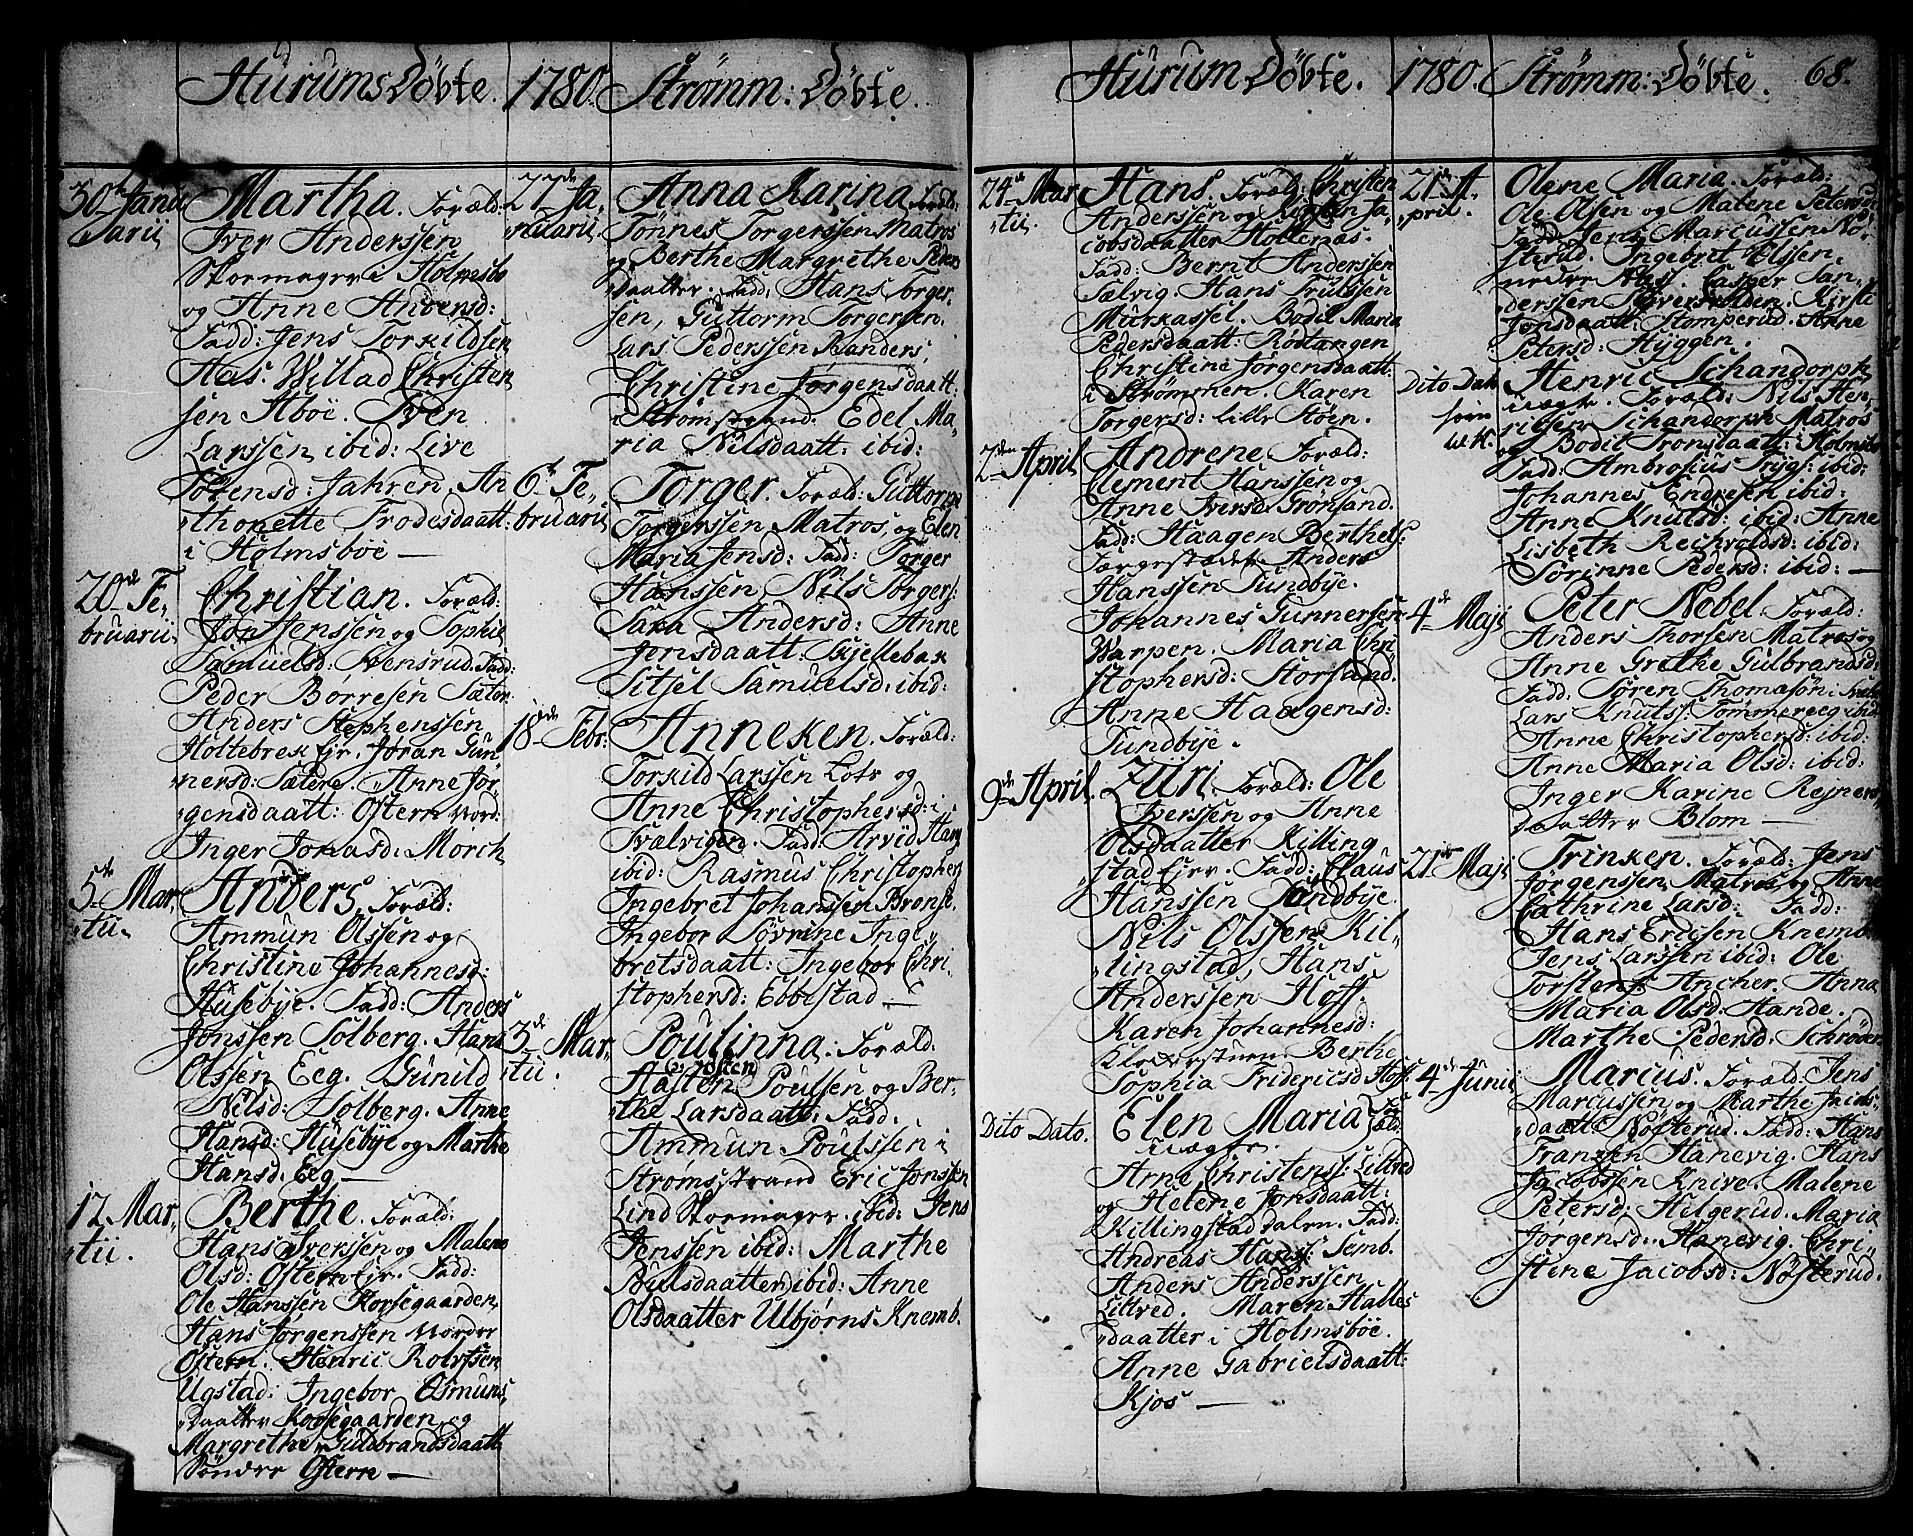 Hurums Döbte. 1780. Strømm: Döbte.
30te Janu
arii
Martha. Foræld:
Iver Anderssen
Skormager i Holmsbo
og Anne Andersd:
Fadd: Jens Torkildsen
Aas. Willad Christen
sen Aböe. Sven
Larssen ibid: Live
Sörensd: Jahren. An
thonette Frodesdaatt:
i Holmsböe —
20de Fe,
bruarii.
Christian. Foræld:
Jon Jenssen og Sophie
Samuelsd: Svensrud. Fadd:
Peder Börresen Sætor
Anders Stephenssen
Holtebrek Ejr. Jöran Gun
nersd: Sætere. Anne Jör,
gensdaatt: Östern nord:
Inger Jonasd: Mörch
5te Mar,
tii.
Anders. Foræld:
Ammun Olssen og
Christine Johannesd:
Husebÿe. Fadd: Anders
Jonssen Solberg. Hans
Olssen Eeg. Gunild
Nilsd: Solberg. Anne
Hansd: Husebÿe og Marthe
Hansd: Eeg —
12. Mar,
tii.
Berthe. Foræld:
Hans Iverssen og Malene
Olsd: Östern Ejr. Fadd:
Ole Hanssen Korsegaarden
Hans Jørgenssen Norder
Östern. Henric Rolvssen
Ugstad: Ingebor Osmuns,
daatter Korsegaarden og
Margrethe Guldbrandsdaatt:
Sönder Östern —
27de Ja,
nuarii.
Anna Karina. Foræld:
Tönnes Torgerssen Matros
og Berthe Margrethe Peders
daatter. Fadd: Hans Torger,
sen, Guttorm Torgersen.
Lars Pederssen Randers,
Christine Jørgensdaatt:
i Strömstrand. Edel Ma,
ria Nilsdaatt: ibid:
6te Fe,
bruarii
Torger. Foræld: Guttorm
Torgerssen Matros, og Elen
Maria Jensd: Fadd: Torger
Hanssen, Nils Torgers:
Sara Andersd: Anne
Jonsdaatt: Skjellebæk
Sitsel Samuelsd: ibid:
18de Febr:
Anneken. Foræld:
Torkild Larssen Lots og
Anne Christophersd: i
Svælvigen. Fadd: Arvid Hans
ibid: Rasmus Christophers
Ingebret Johanssen Bronse.
Ingebor Sövrine Inge,
bretsdaatt: Ingebor Chri
stophersd: Ebbestad —
3de Mar,
tii.
Poulinna. Foræld:
Hasten Poulsen og Ber,
the Larsdaatt: Fadd:
Ammun Poulssen i
Strømsstrand Eric Jonssen
Lind Skormager. ibid: Jens
Jenssen ibid: Marthe
Poulsdaatter ibid: Anne
Olsdaatter Ulbjørns Knemb.
Hurum Döbte. 1780. Strømm: Döbte. 68.
24de Mar
tii.
Hans. Foræld: Christen
Anderssen og Ja,
cobsdaatter Holtenæs.
Fadd: Bernt Anderssen
Sælvig. Hans Trulssen
Murkassel. Bodil Maria
Pedersdaatt: Rödtangen
Christine Jørgensdaatt:
i Strømmen. Karen
Torgersd: lille Støen.
2den April
Andrene Foræld:
Clement Hanssen og
Anne Iversd: Grönsand.
Fadd: Haagen Berthels:
Anders
Hanssen Tundbÿe.
Johannes Gunnerssen
Warpen. Maria Chri,
stophersd: Storsand.
Anne Haagensd:
Tundbÿe.
9de April.
Züri. Foræld: Ole
Iverssen og Anne
Olsdaatter Killing
stad Ejer. Fadd: Claus
Hanssen Tundbÿe.
Nils Olssen Kil,
lingstad, Hans
Anderssen Hoff.
Karen Johannesd:
Klokkerstuen Berthe
Sophia Fridericsd Hoff.
Dito Dato.
Elen Maria Foræld:
uægte.
Arne Christens: Lillred
og Helene Jonsdaatt:
Killingstad dalen. Fadd:
Andreas Hans: Semb.
Anders Anderssen
Lillred. Maren Halles
daatter i Holmsböe.
Anne Gabrielsdaatt:
Kjos —
21de A
pril.
Olene Maria. Foræld:
Ole Olsen og Malene Petersd:
Fadd: Jens Marcussen Nö,
sterud. Ingebrit Olssen.
neder Aas. Casper San,
derssen Kirsti
Jonsdaatt: Stomperud. Anne
Petersd: Hÿggen.
Dito Dato
Henric Schandorph
uægte. Foræld: Nils Hen,
rikssen Schandorph Matros
og Bodil Tronsdaatt: i Holmsbo
Fadd: Ambrosius Trÿgs: ibid:
Johannes Endresen ibid:
Anne Knutsd: ibid: Anne
Lisbeth Rechvoldsd: ibid:
Sörinne Pedersd: ibid: —
4de Maji
Peter Nebel. Foræld:
Anders Thorsen Matros og
Anne Grethe Gulbrandsd:
Fadd. Sören Thomasön i
Lars Knuts: Tömmereeg ibid:
Anne Christophersd: ibid:
Anne Maria Olsd: ibid:
Inger Karine Rejners
daatter Blom —
21de Maji
Trinken. Foræld: Jens
Jørgenssen Matros og Anne
Cathrine Larsd: Fadd:
Hans Ericsen Knemb.
Jens Larssen ibid: Ole
Torstens: Ancher. Anna
Maria Olsd: Hande.
Marthe Pedersd: Schröder
4de Junii
Marcus. Foræld: Jens
Marcussen og Marthe Jacobs,
daatt: Nösterud. Fadd: Hans
Franzen Hanevig. Hans
Jacobssen Knive. Malene
Petersd: Helgerud. Maria
Jørgensd. Hanevig. Chri,
stine Jacobsd: Nøsterud.